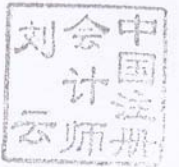 中国注册
会计师
刘云